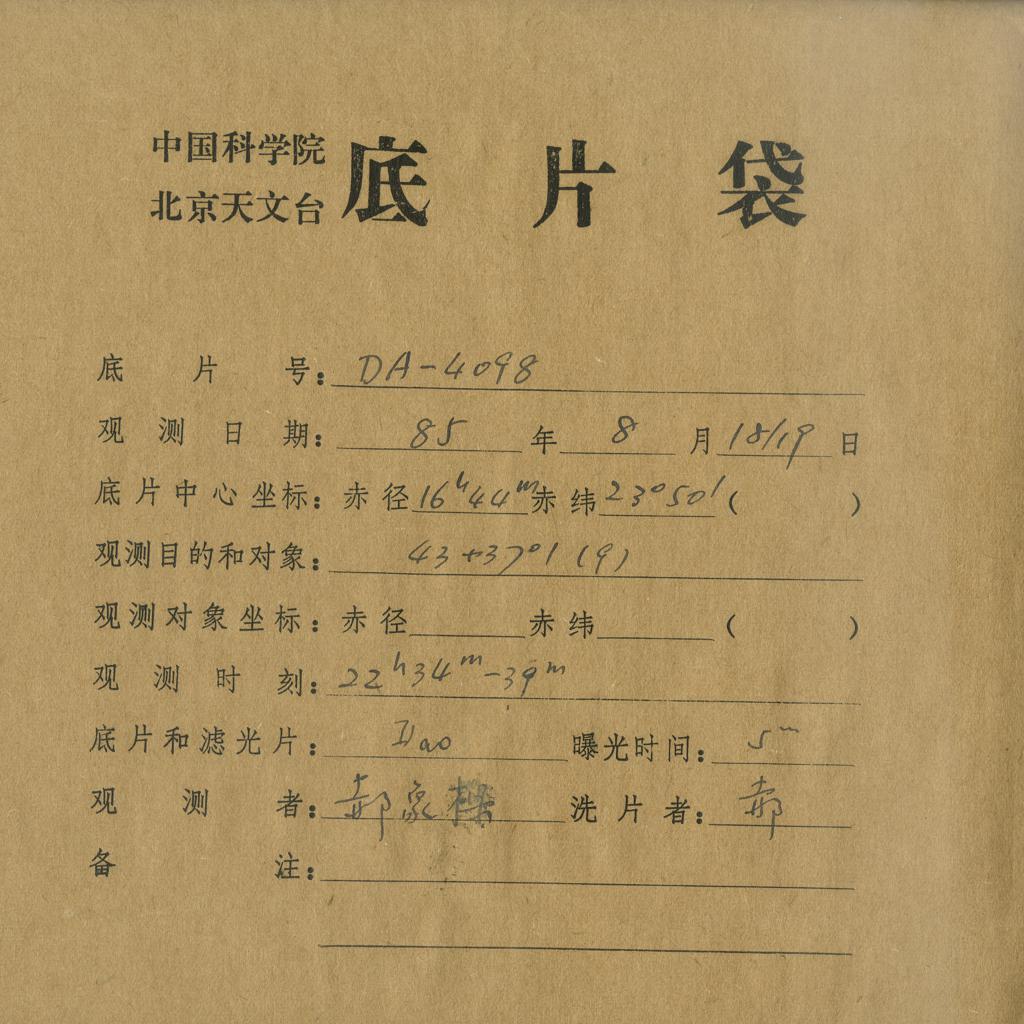 中国科学院
北京天文台
底片袋
底片号：DA-4098
观测日期：85年8月18/19日
底片中心坐标：赤径16h44m赤纬23°50'(  )
观测目的和对象：43+37°1 (9)
观测对象坐标：赤径 赤纬 (  )
观测时刻：22h34m-39m
底片和滤光片：IIao 曝光时间：5m
观测者：郝象樑 洗片者：郝
备注：